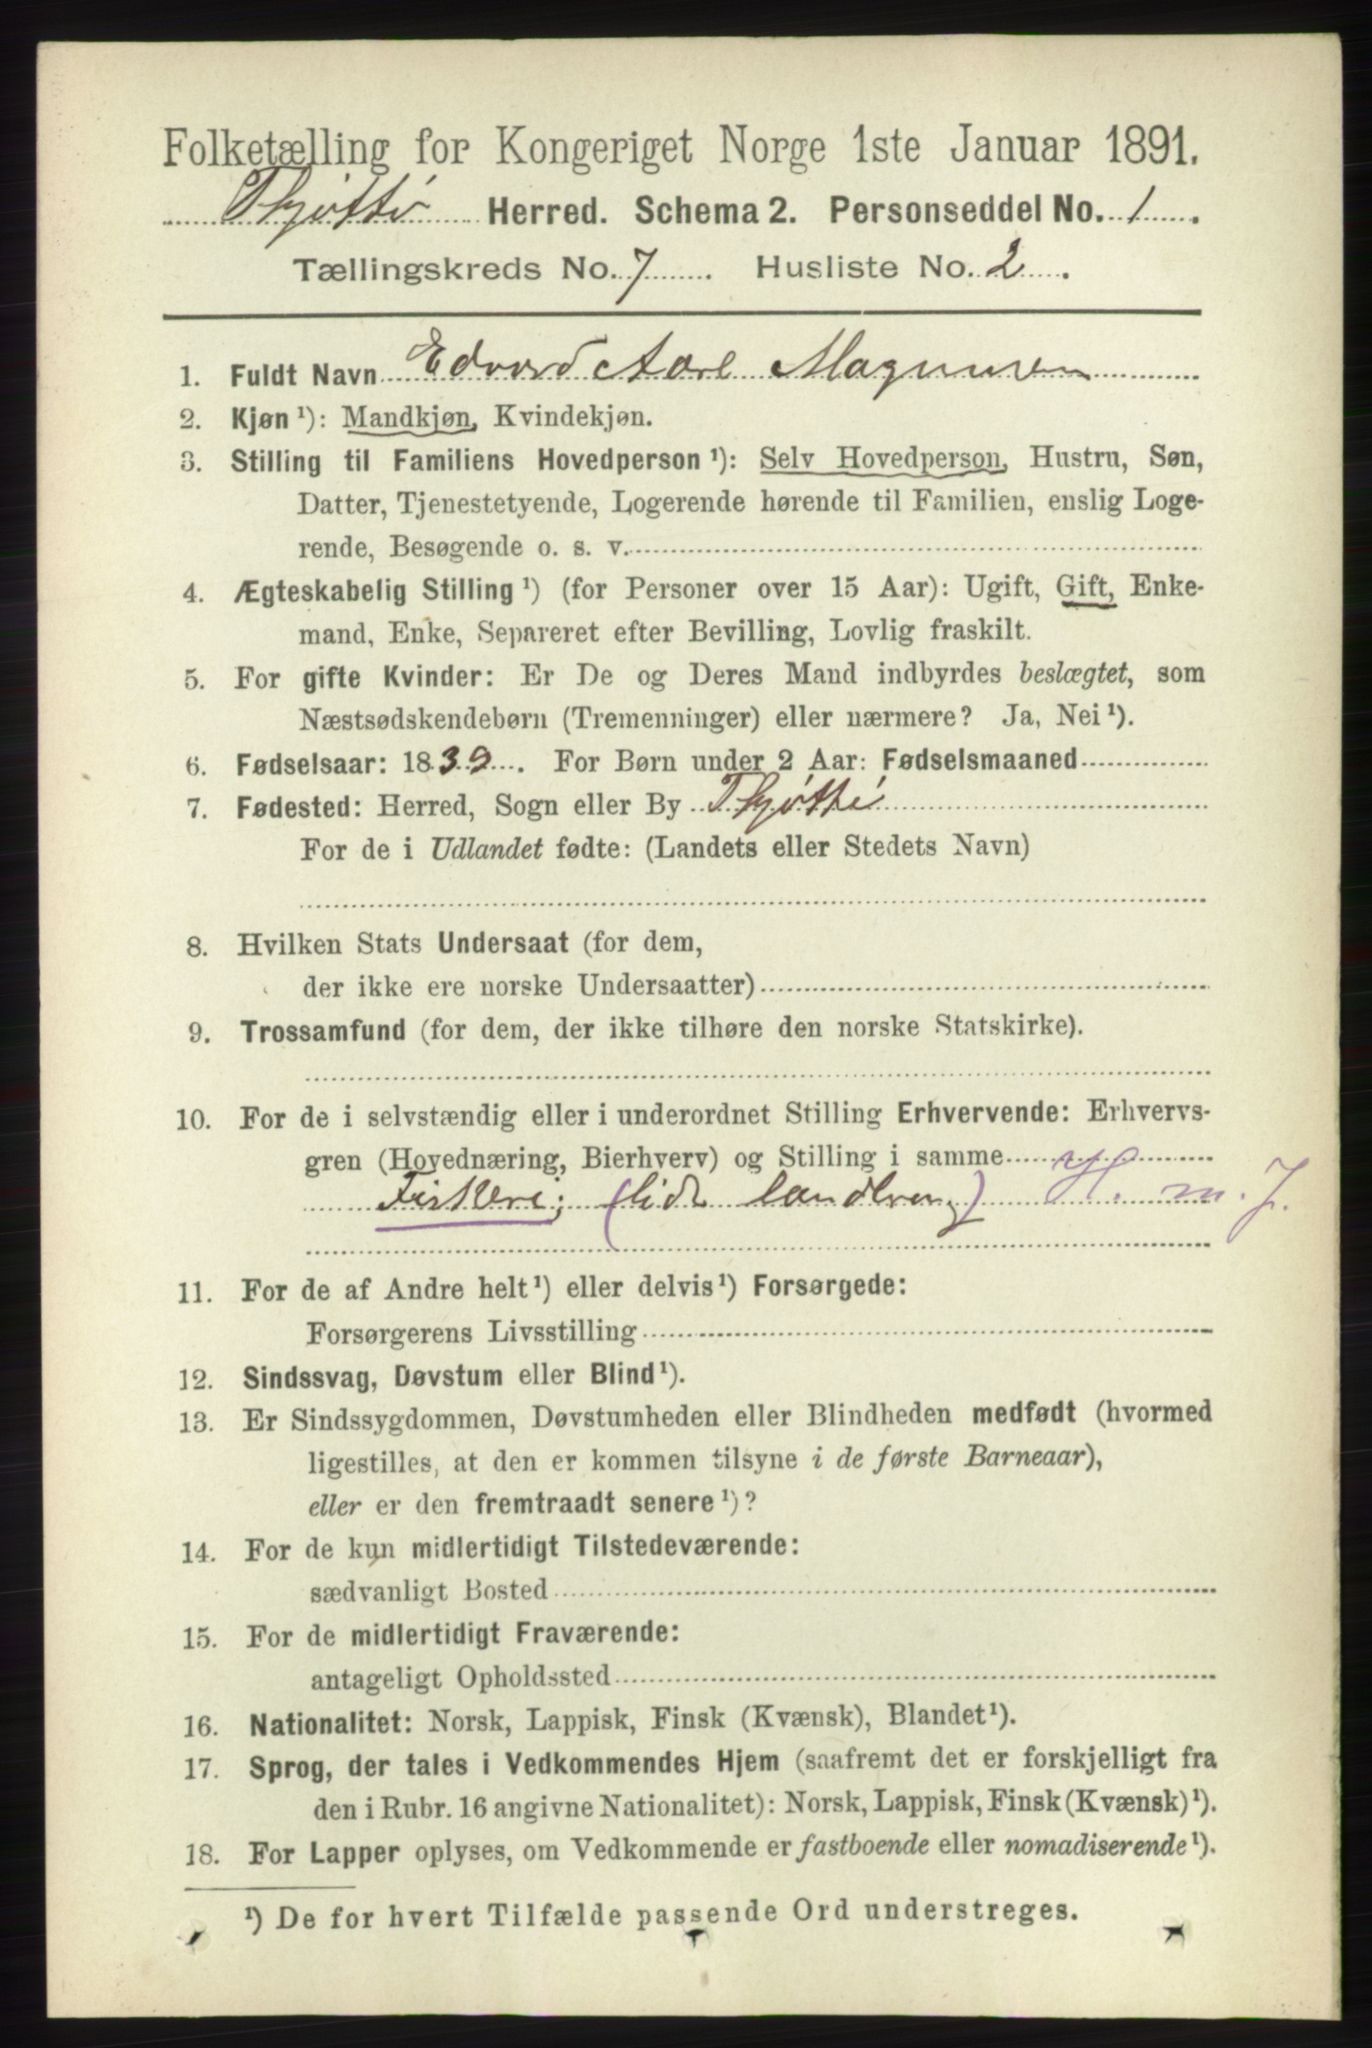 Folketælling for Kongeriget Norge 1ste Januar 1891.
Thjøttø Herred. Schema 2. Personseddel No. 1.
Tællingskreds No. 7. Husliste No. 2.
1. Fuldt Navn Edvard Magnusen
2. Kjøn ¹): Mandkjøn, Kvindekjøn.
3. Stilling til Familiens Hovedperson ¹): Selv Hovedperson, Hustru, Søn,
Datter, Tjenestetyende, Logerende hørende til Familien, enslig Loge-
rende, Besøgende o. s. v.
4. Ægteskabelig Stilling ¹) (for Personer over 15 Aar): Ugift, Gift, Enke-
mand, Enke, Separeret efter Bevilling, Lovlig fraskilt.
5. For gifte Kvinder: Er De og Deres Mand indbyrdes beslægtet, som
Næstsødskendebørn (Tremenninger) eller nærmere? Ja, Nei ¹).
6. Fødselsaar: 1839. For Børn under 2 Aar: Fødselsmaaned
7. Fødested: Herred, Sogn eller By Thjøttø
For de i Udlandet fødte: (Landets eller Stedets Navn)
8. Hvilken Stats Undersaat (for dem,
der ikke ere norske Undersaatter)
9. Trossamfund (for dem, der ikke tilhøre den norske Statskirke).
10. For de i selvstændig eller i underordnet Stilling Erhvervende: Erhvervs-
gren (Hovednæring, Bierhverv) og Stilling i samme
Fiskeri; (lidt landbrug) m. J.
11. For de af Andre helt ¹) eller delvis ¹) Forsørgede:
Forsørgerens Livsstilling
12. Sindssvag, Døvstum eller Blind ¹).
13. Er Sindssygdommen, Døvstumheden eller Blindheden medfødt (hvormed
ligestilles, at den er kommen tilsyne i de første Barneaar),
eller er den fremtraadt senere ¹)?
14. For de kun midlertidigt Tilstedeværende:
sædvanligt Bosted
15. For de midlertidigt Fraværende:
antageligt Opholdssted
16. Nationalitet: Norsk, Lappisk, Finsk (Kvænsk), Blandet ¹).
17. Sprog, der tales i Vedkommendes Hjem (saafremt det er forskjelligt fra
den i Rubr. 16 angivne Nationalitet): Norsk, Lappisk, Finsk (Kvænsk) ¹).
18. For Lapper oplyses, om Vedkommende er fastboende eller nomadiserende ¹).
¹) De for hvert Tilfælde passende Ord understreges.